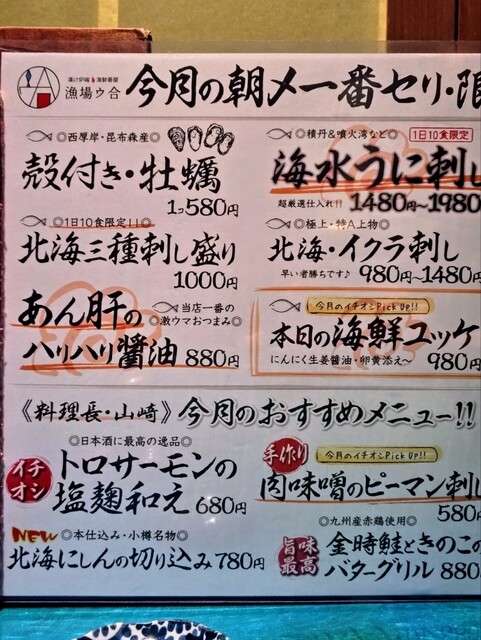 漁場ゥ合
今月の朝〆一番セリ・限
◎西厚岸・昆布森産◎
殻付き・牡蠣
1コ580円
◎1日10食限定!!◎
北海三種刺し盛り
1000円
あん肝の
◎当店一番の
激ウマおつまみ◎
ハリハリ醬油 880円
◎積丹&噴火湾など◎ 1日10食限定
海水うに刺し
超厳選仕入れ!! 1480円〜1980
◎極上・特A上物◎
北海・イクラ刺し
早い者勝ちです♪ 980円〜1480円
今月のイチオシPick Up!!
本日の海鮮ユッケ
にんにく生姜醤油・卵黄添え〜 980円
《料理長・山崎》今月のおすすめメニュー!!
◎日本酒に最高の逸品◎
イチオシ
トロサーモンの
塩麹和え 680円
NEW ◎本仕込み・小樽名物◎
北海にしんの切り込み 780円
手作り 今月のイチオシPick Up!!
肉味噌のピーマン刺し
580円
◎九州産赤鶏使用◎
旨味最高
金時鮭ときのこの
バターグリル 880